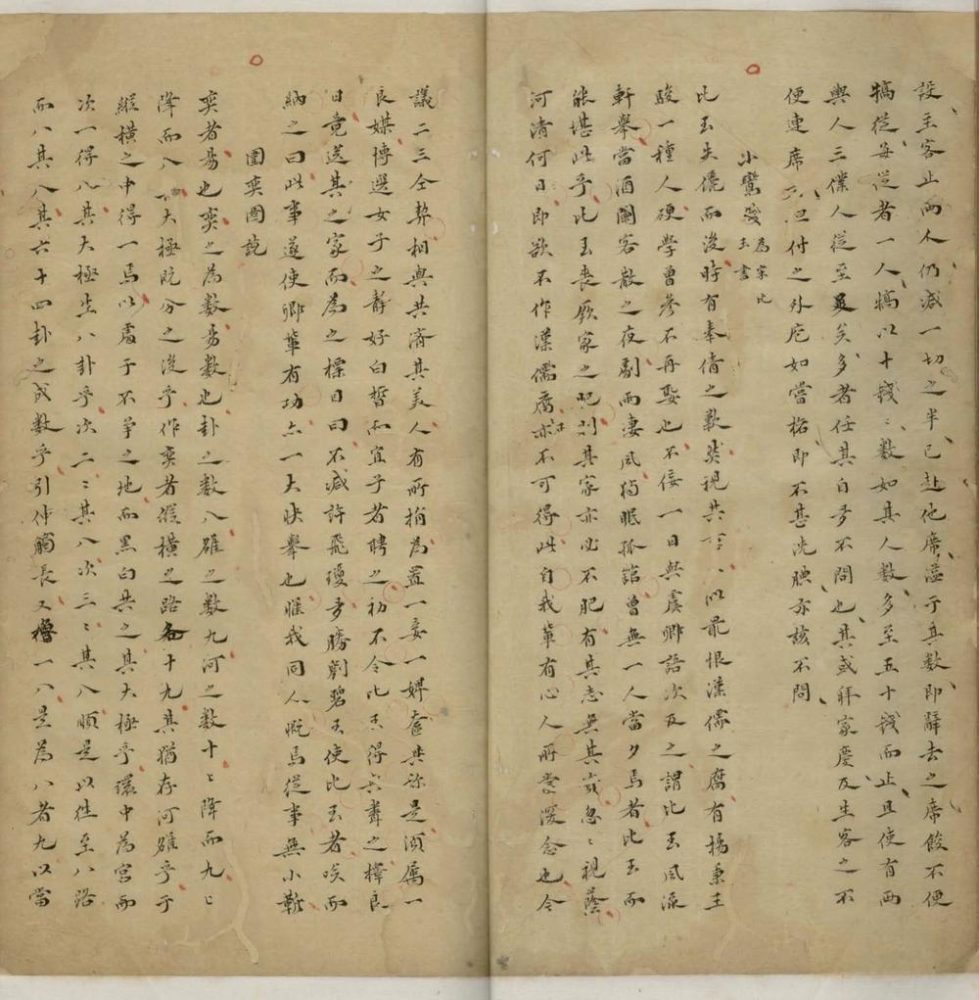 設主客止兩人仍減一切之半已赴他席溢于其數即辭去之席餕不便
犒從每從者一人犒以十錢〻數如其人數多至五十錢而止且使有兩
與人三僕人從至是矣多者任其自為不問也其或拜家慶及生客之不
便連席六四付之外庖如當格即不甚洗腆亦該不問
小鸞發為宗比玉書
比玉失儷而後時有奉倩之歎然視其〻以最恨漢儒之腐有揚秉王
駿一種人硬學曾參不再娶也不佞一日與虞卿語次及之謂比玉風流
軒舉當酒闌客散之夜剔而凄風獨眠孤詣曾無一人當夕焉者比玉而
能堪此乎比玉喪厥家之肥則其家亦必不肥有其志無其歲忽〻視蔭
河清何日即欲不作漢儒腐亦不可得此自我輩有心人所當深念也今
議二三仝契相與共濟其美人有所捐為置一妾一婢奩其祢是須屬一
良媒博選女子之靜好白皙和宜子者聘之初不令比玉得與聞之擇良
日竟送其之家而為之標目曰不減許飛瓊方勝劉碧玉使比玉者咲而
納之曰此事遂使卿輩有功亦一大快舉也惟我同人既馬從事無小靳
圍奕圖說
奕者易也奕之為數易數也卦之數八雒之數九河之數十〻降而九〻
降而八〻大極既分之後乎作奕者縱橫之路各十九其猶存河雒乎于
縱橫之中得一馬以處于不爭之地而黑白共之其大極乎環中為宮而
次一得八其大極生八卦乎次二〻其八次三〻其八順是以往至八路
而八其八其六十四卦之成數乎引伸觸長又增一八是為八者九以當